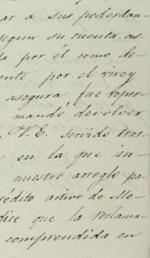 ar a sus poderdan
segun su cuenta as
da por él como de
ento por el virey
asegura fue repro
mandó devolver
V. E. servido tras
en la que in
nuestro arreglo pa
rédito activo de Me
dice que la reclama
comprendida en